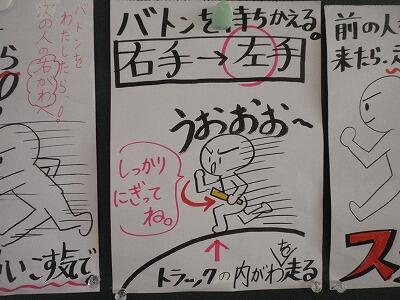 バトンを
わたしたら、
次の人の右がわへ!
いこす気で
バトンを持ちかえる。
右手→左手
うおおお〜
しっかり
にぎって
ね。
トラックの内がわを走る
前の人
来たら、
ス